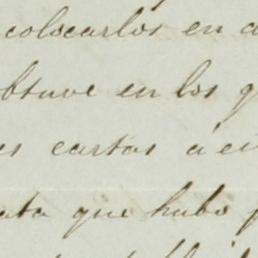 colocarlos en
obtuve en los
es cartas á
que hubo